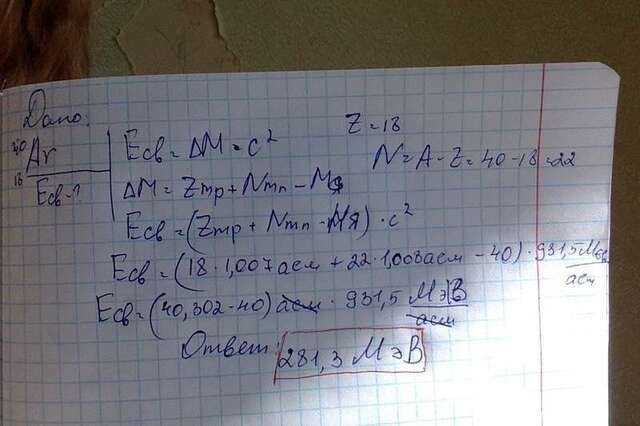 Дано:
⁴⁰₁₈Ar
Eсв-?
Eсв = ΔM = c²
ΔM = Zmp + Nmn - Mя
Eсв = (Zmp + Nmn - Mя) · c²
Z = 18
N = A - Z = 40 - 18 = 22
Eсв = (18 · 1,007 аем + 22 · 1,008 аем - 40) · 931,5 МэВ/аем
Eсв = (40,302 - 40) аем · 931,5 МэВ/аем
Ответ: 281,3 МэВ